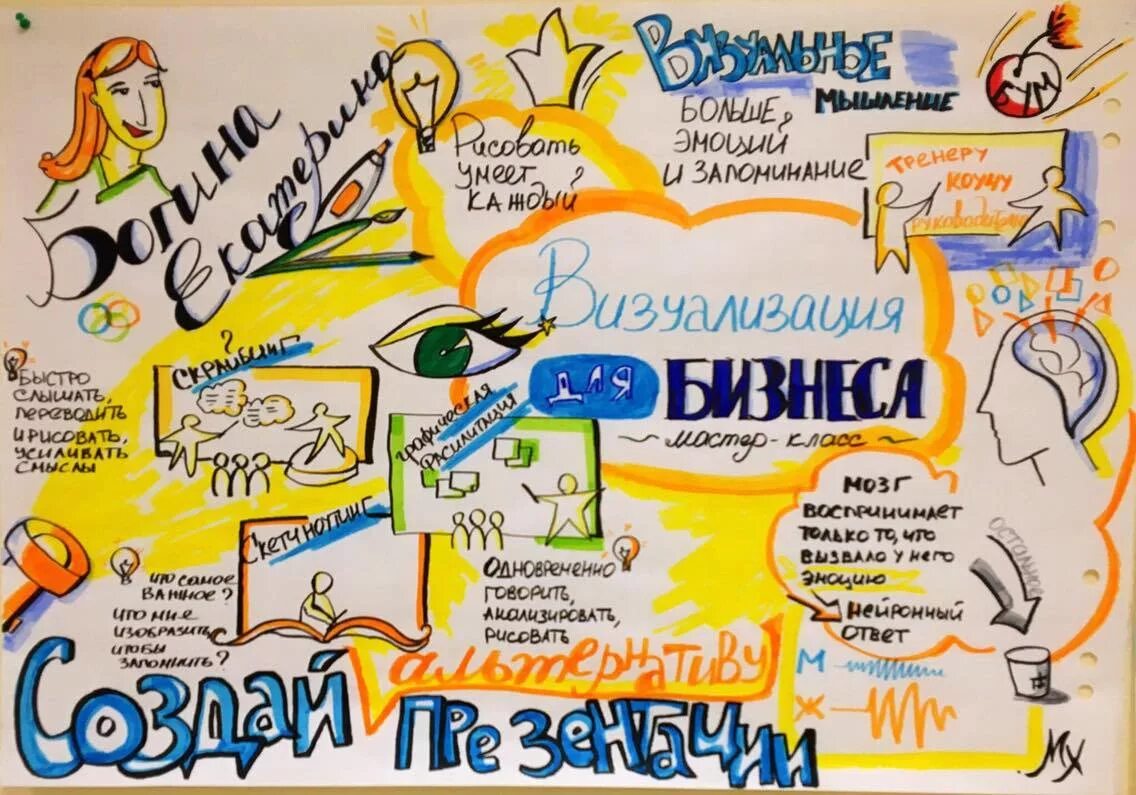 Богина
Екатерина
Рисовать
умеет
каждый?
Визуальное
мышление
БУМ
Больше
эмоций
и запоминание
тренеру
коучу
руководителю
Визуализация
для
бизнеса
~ мастер-класс ~
?
Скрайбинг
Быстро
слышать,
переводить
и рисовать,
усиливать
смыслы
графическая
фасилитация
Одновременно
говорить,
анализировать,
рисовать
Скетчноутинг
Что самое
важное?
Что мне
изобразить
чтобы
запомнить?
Мозг
воспринимает
только то, что
вызвало у него
эмоцию
нейронный
ответ
остальное
М
Ж
Создай
альтернативу
презентации
МХ